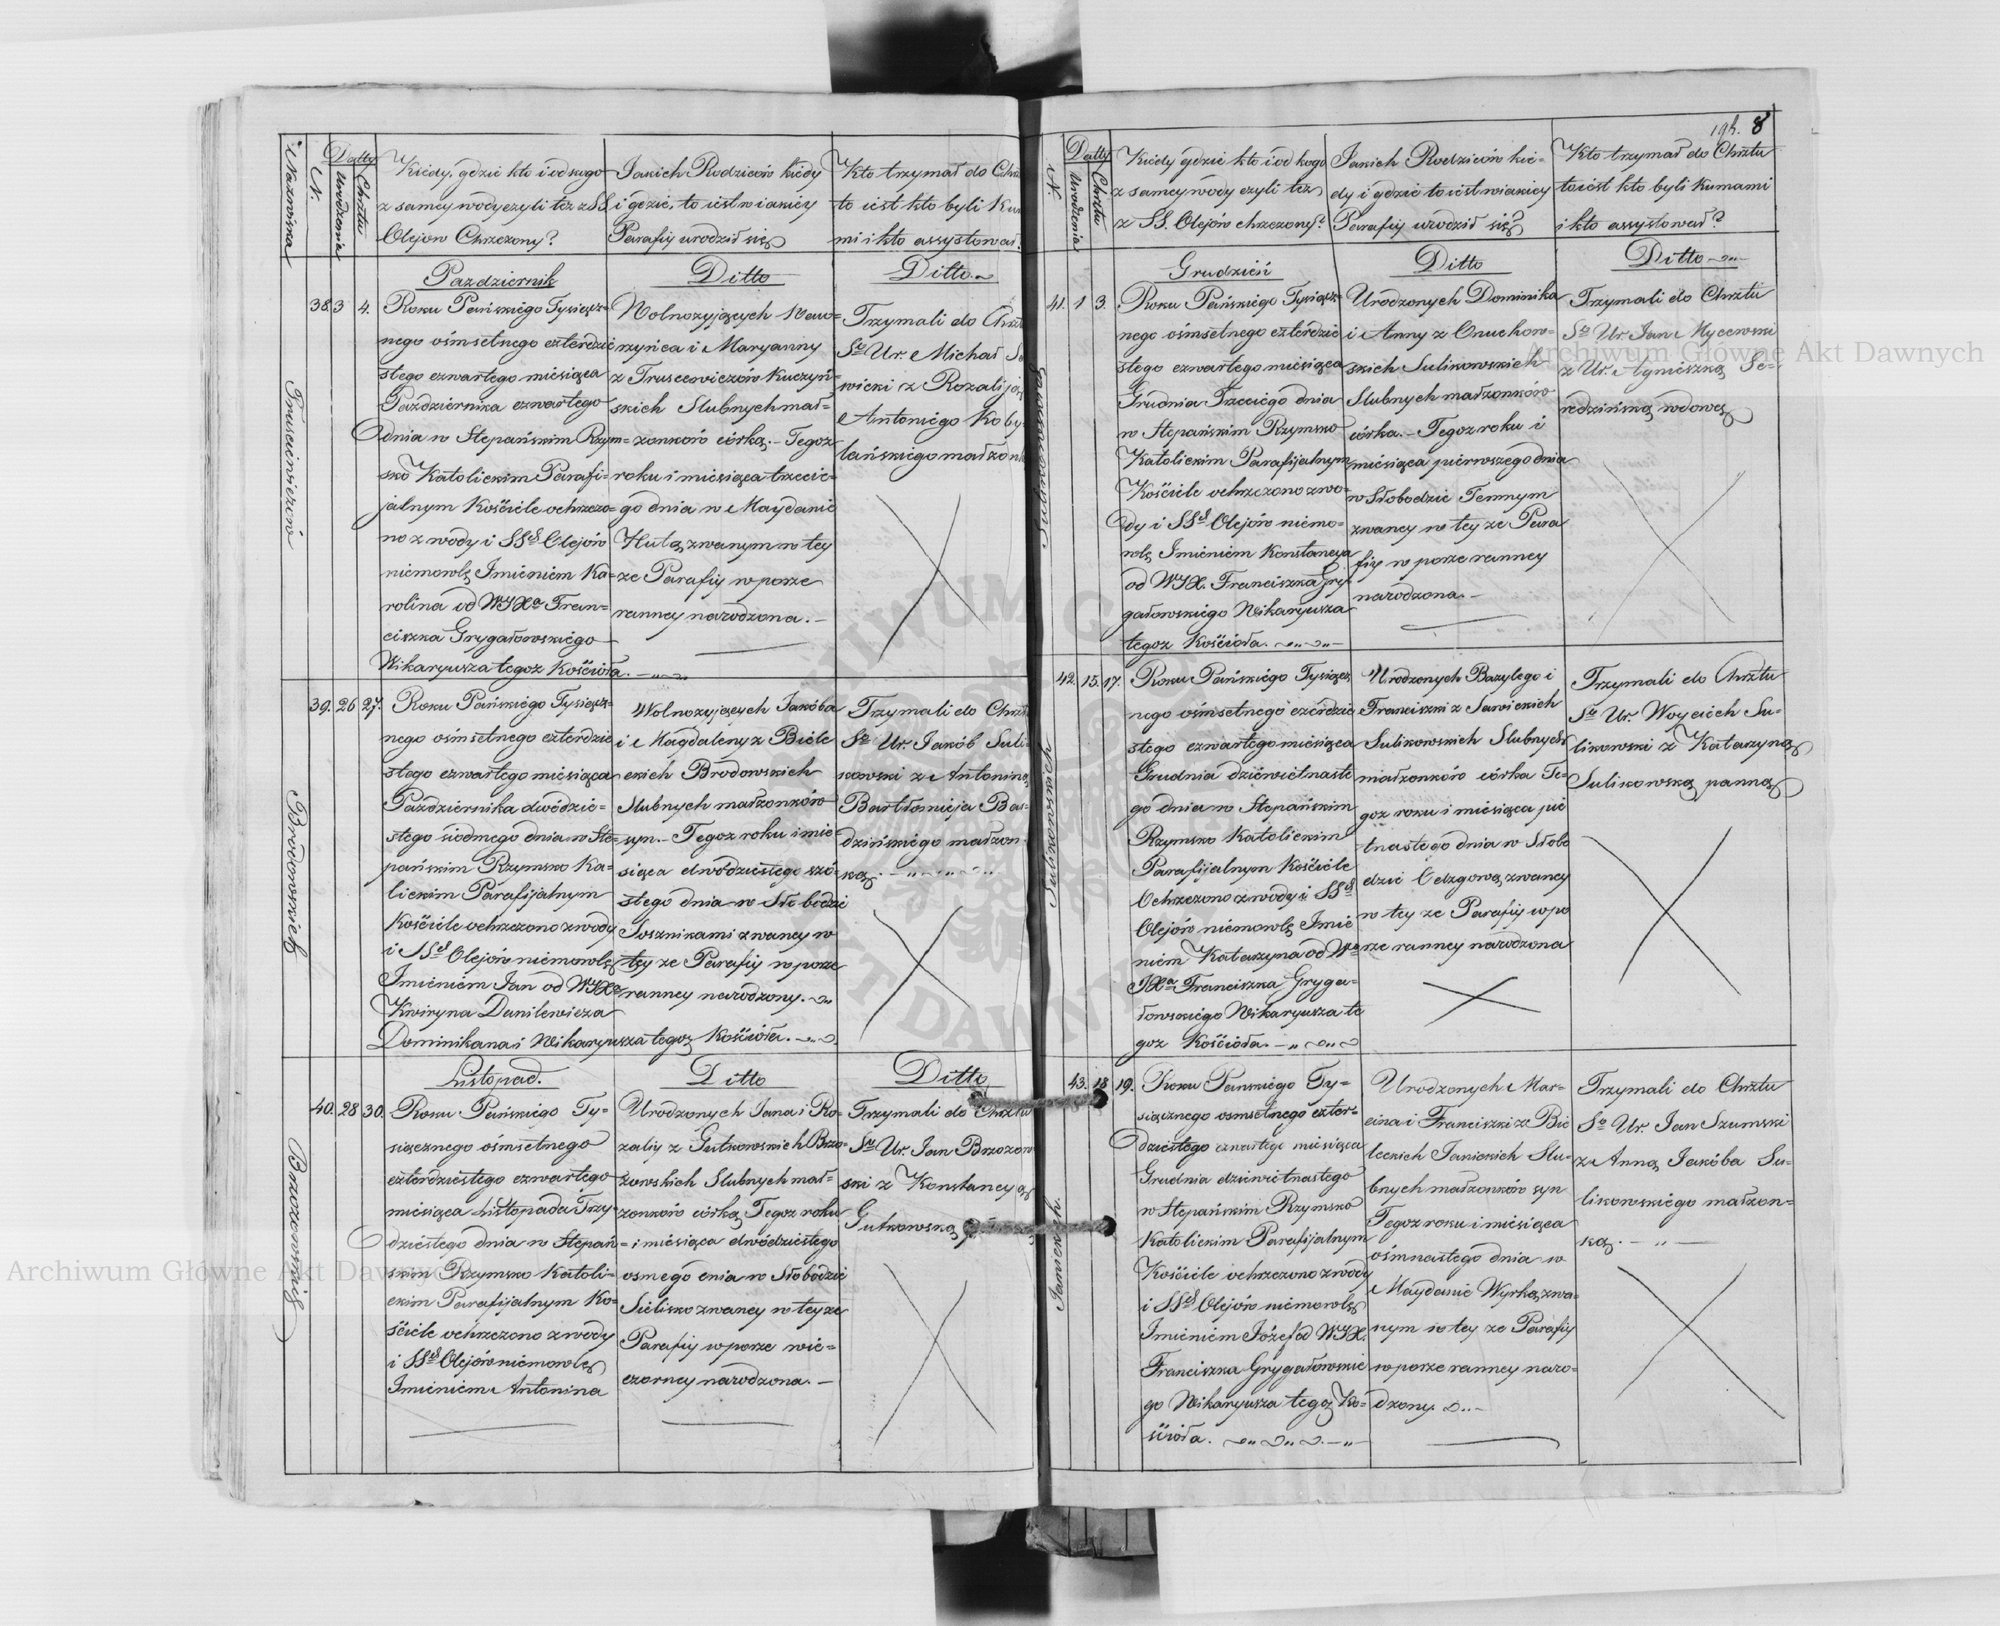 Nazwiska
N.
Datty
Urodzenia
Chrztu
Kiedy, gdzie kto i od kogo
z samey wody czyli też z SS
Olejow Chrzczony?
Jakich Rodziców kiedy
i gdzie, to iest w iakiéy
Parafiy urodził się
Kto trzymał do Chrz
to iest kto byli Kum
mi i kto assystował?
Pazdziernik
Ditto
Ditto
38. 3 4.
Roku Pańskiégo Tysiącz=
nego ośmsetnego czterdzie
stego czwartego miesiąca
Pazdziernika czwartego
dnia w Stepańskim Rzym=
sko Katolickim Parafi=
jalnym Kościele ochrzczo=
no z wody i SSch Olejów
niemowlę Imieniem Ka=
rolina od WJXa Fran=
ciszka Grygałowskiégo
Wikaryusza tegoz Kościoła.
Wolnozyjących Waw=
rzyńca i Maryanny
z Truscewiczów Kuczyń=
skich Slubnych mał=
żonków córka. Tegoz
roku i miesiąca trzecie=
go dnia w Maydanie
Hutą zwanym w tey
ze Parafiy w porze
ranney narodzona.
Trzymali do Chrzt
So Ur. Michał Sa
wicki z Rozaliją
Antoniégo Koby
lańskiégo małzonk
39. 26 27.
Brodowskich
Roku Pańskiégo Tysiącz=
nego ośmsetnego czterdzie
stego czwartego miesiąca
Października dwódzie=
stego siodmego dnia w Ste=
pańskim Rzymsko Ka=
lickim Parafijalnym
Kościele ochrzczono z wody
i SSch Olejów niemowlę
Imieniem Jan od WJXa
Kwiryna Danilewicza
Dominikana i Wikaryusza tegoz Kościoła.
Wolnozyjących Jakóba
i Magdaleny z Biele
ckich Brodowskich
Slubnych małzonków
syn. Tegoz roku i mie=
siąca dwódziestego szó=
stego dnia w Słobodzie
Sosznikami zwaney w
tey ze Parafiy w porze
ranney narodzony.
Trzymali do Chrzt
So Ur. Jakób Suli=
kowski z Antoniną
Bartłomieja Ba=
dzińskiégo małzon=
ką.
Listopad.
Ditto
Ditto
40. 28 30.
Brzozowskich
Roku Pańskiégo Ty=
siącznego ośmsetnego
czterdziestego czwartego
miesiąca Listopada Trzy=
dziestego dnia w Stepań=
skim Rzymsko Katoli=
ckim Parafijalnym Ko=
ściele ochrzczono z wody
i SSch Olejów niemowlę
Imieniem Antonina
Urodzonych Jana i Ro=
zaliy z Gutkowskich Brzo=
zowskich Slubnych mał=
zonków córka Tegoz roku
i miesiąca dwódziestego
osmego dnia w Słobodzie
Sielisko zwaney w tey ze
Parafiy w porze wie=
czorney narodzona.
Trzymali do Chrztu
So Ur. Jan Brzozow
ski z Konstancyą
Gutkowską
8
N.
Datty
Urodzenia
Chrztu
Kiedy gdzie kto i od kogo
z samey wody czyli też
z SS. Olejów chrzczony?
Jakich Rodziców kie=
dy i gdzie to iest w iakiey
Parafiy urodził się?
Kto trzymał do Chrztu
to iest kto byli Kumami
i kto assystował?
Grudzień
Ditto
Ditto
41. 1 3.
Sulikowskich
Roku Pańskiégo Tysiącz=
nego ośmsetnego czterdzie
stego czwartego miesiąca
Grudnia Trzeciégo dnia
w Stepańskim Rzymsko
Katolickim Parafijalnym
Kościele ochrzczono z wo=
dy i SSch Olejów niemo=
wlę Imieniem Konstancya
od WJX. Franciszka Gry
gałowskiégo Wikaryusza
tegoz Kościoła.
Urodzonych Dominika
i Anny z Onuchow=
skich Sulikowskich
Slubnych małzonków
córka. Tegoz roku i
miesiąca pierwszego dnia
w Słobodzie Temnym
zwaney w tey ze Para
fiy w porze ranney
narodzona.
Trzymali do Chrztu
So Ur. Jan Mycewski
z Ur. Agnieszką Se=
redzińską wdową
42. 15. 17.
Sulikowskich
Roku Pańskiégo Tysiącz
nego ośmsetnego czterdzie
stego czwartego miesiąca
Grudnia dziewiętnaste
go dnia w Stepańskim
Rzymsko Katolickim
Parafijalnym Kościele
Ochrzczono z wody i SSch
Olejów niemowlę Imie
niem Katarzyna od W
JXa Franciszka Gryga=
łowskiégo Wikaryusza te
goz Kościoła.
Urodzonych Bazylego i
Franciszki z Sawickich
Sulikowskich Slubnych
małzonków córka Te=
goz roku i miesiąca pie
tnastego dnia w Słobo
dzie Odzgową zwaney
w tey ze Parafiy w po
rze ranney narodzona
Trzymali do Chrztu
So Ur. Woyciech Su=
likowski z Katarzyną
Sulikowską panną
43. 18 19.
Janickich.
Roku Pańskiégo Ty=
siącznego osmsetnego czter=
dziestego czwartego miesiąca
Grudnia dziewietnastego
w Stepańskim Rzymsko
Katolickim Parafijalnym
Kościele ochrzczono z wody
i SSch Olejów niemowlę
Imieniem Józef od WJX.
Franciszka Grygałowskie
go Wikaryusza tegoz Ko=
ścioła.
Urodzonych Mar=
cina i Franciszki z Bie
leckich Janickich Slu=
bnych małzonków syn
Tegoz roku i miesiąca
ośmnastego dnia w
Maydanie Wyrką zwa=
nym w tey ze Parafiy
w porze ranney naro=
dzony
Trzymali do Chrztu
So Ur. Jan Szumski
z Anną Jakóba Su=
likowskiégo małzon=
ką.
Archiwum Główne Akt Dawnych
Archiwum Główne Akt Dawnych